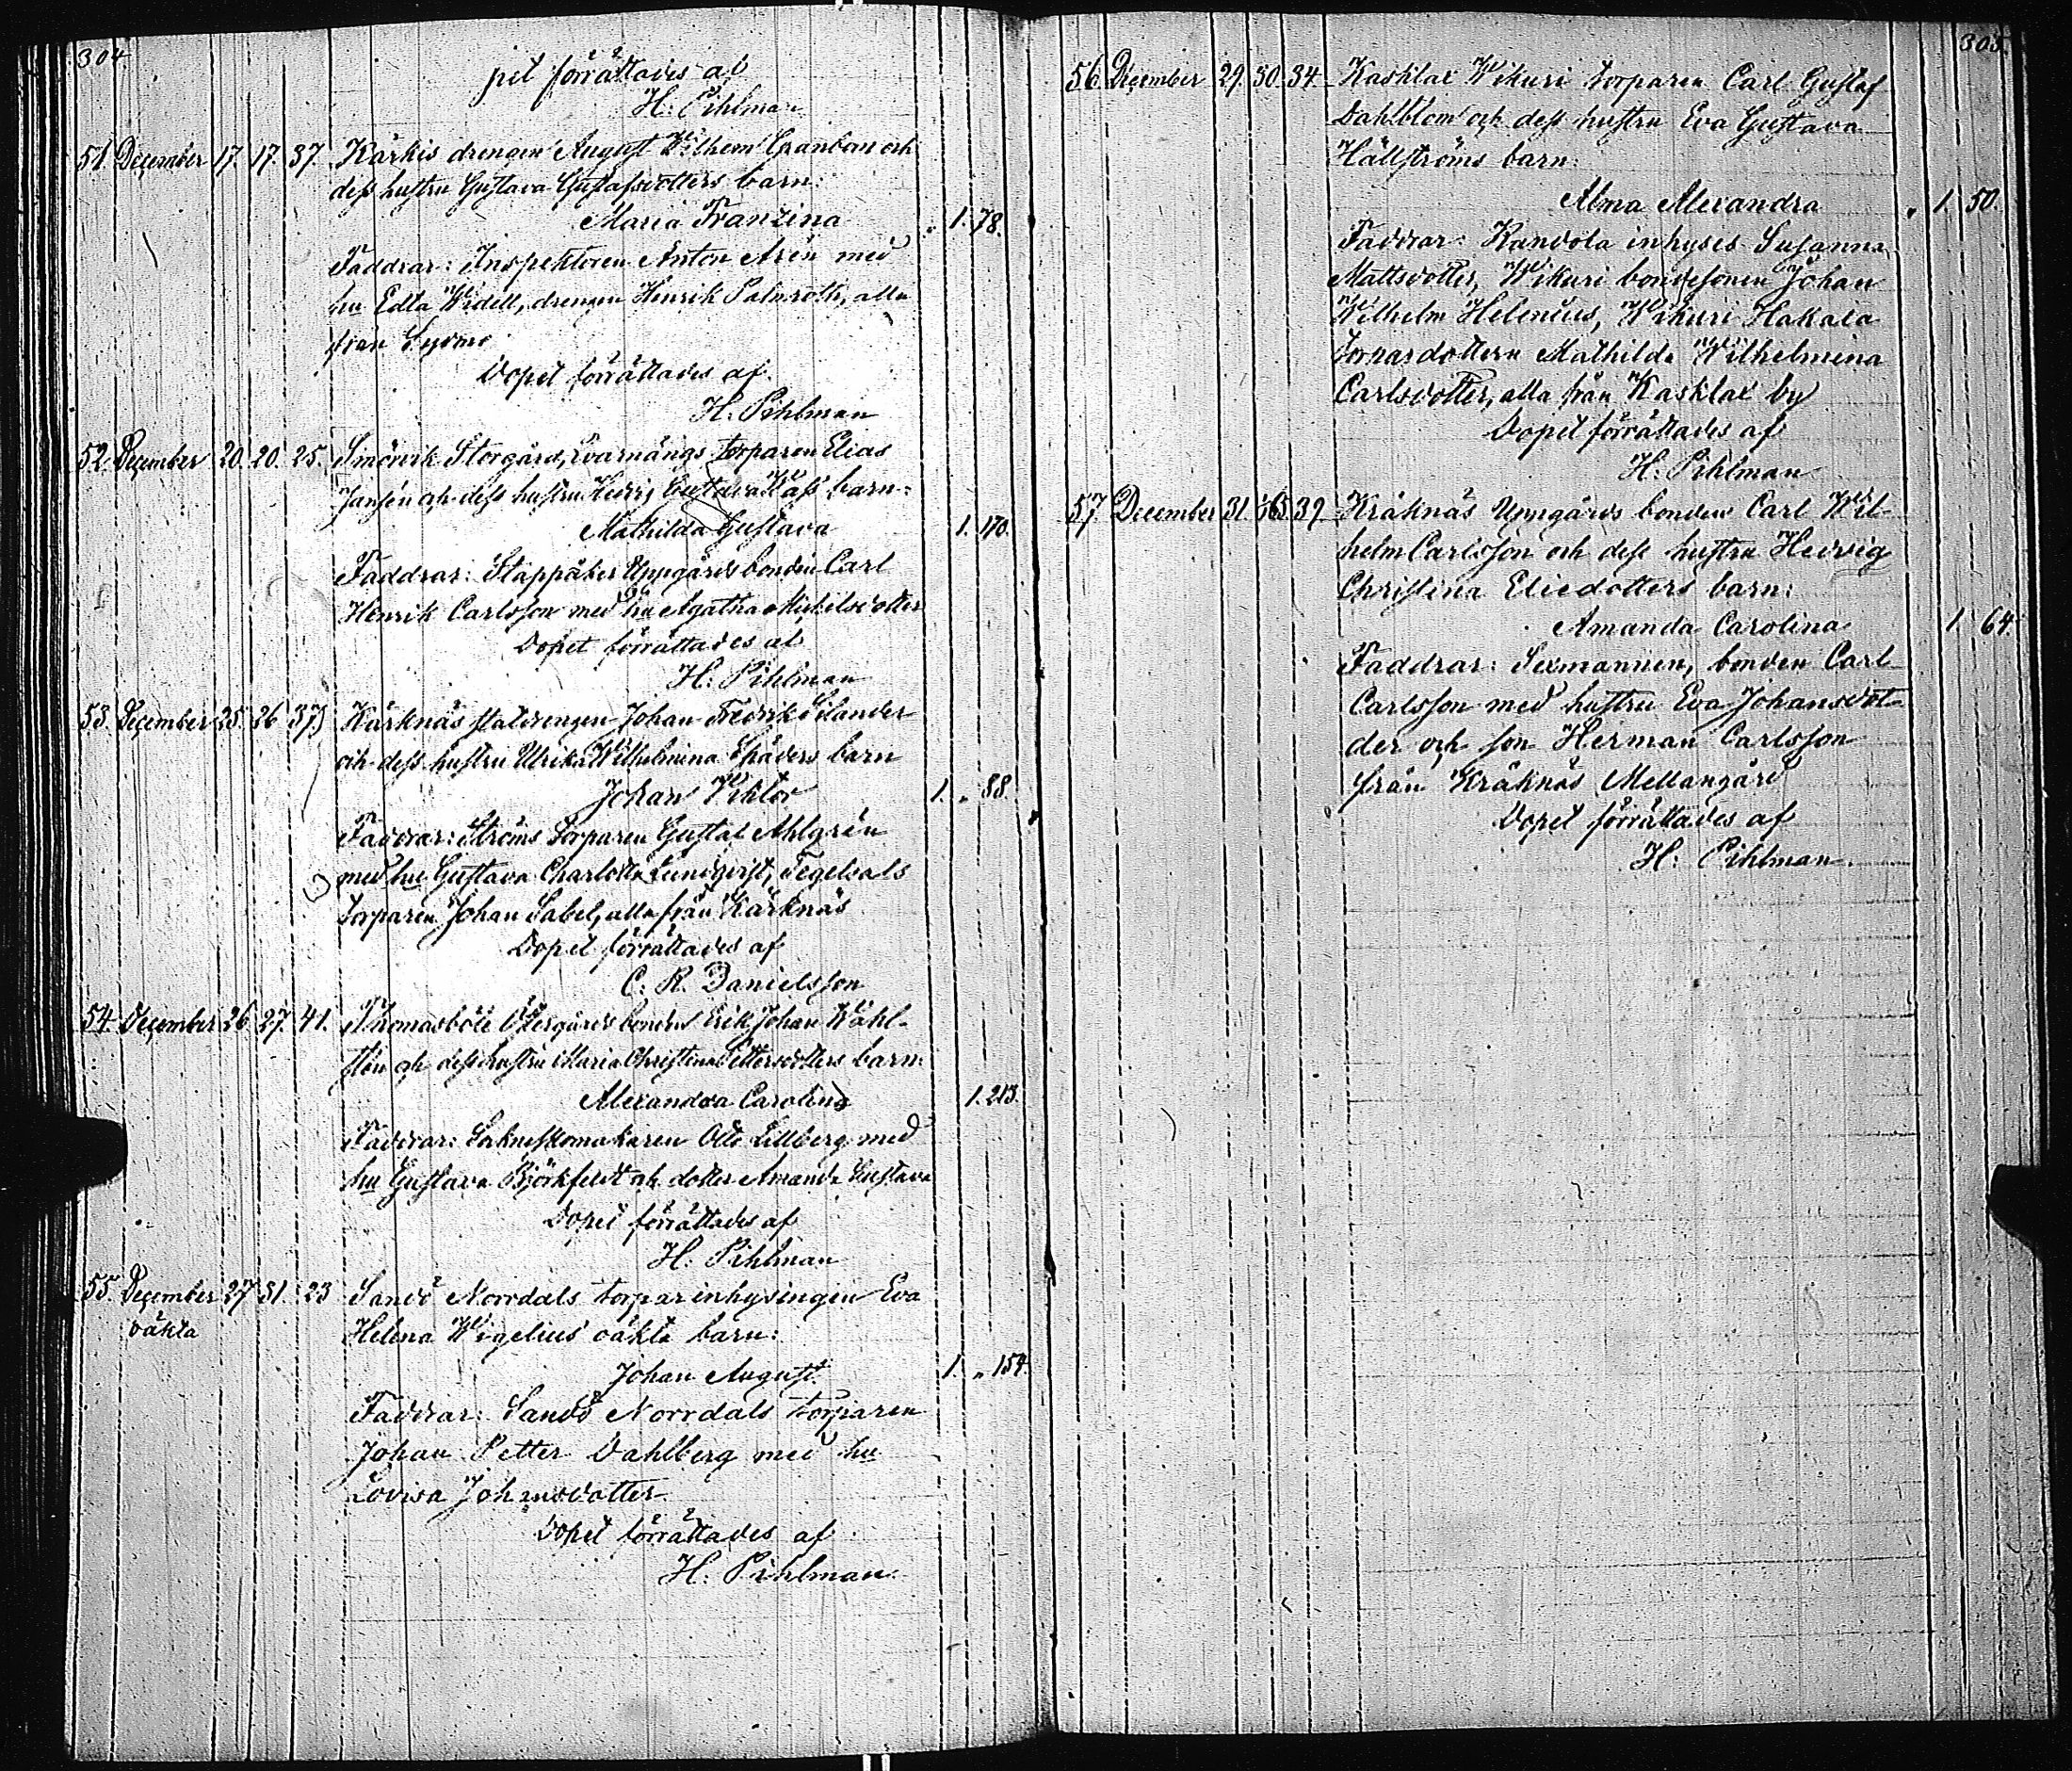 304
pet förrättades af
H. Pihlman
51. December 17. 17. 37. Kärkis drengen August Wilhelm Granbom och
dess hustru Gustava Gustafsdotters barn:
Maria Franzina " 1. 78.
Faddrar: Inspektoren Anton Arén med
hu Edla Widell, drengen Henrik Palmroth, alla
från
Dopet förrättades af
H. Pihlman
52. December 20. 20. 25. Smörvik Storgårds, Qvarnängs torparen Elias
Jansén och dess hustru Hedvig Gustava barn:
Mathilda Gustava 1. 170.
Faddrar: Släppåker Uppgårds bonden Carl
Henrik Carlsson med hu Agatha Mickelsdotter
Dopet förrättades af
H. Pihlman
53. December 25. 26. 37. Kärknäs staldrengen Johan Fredrik Silander
och dess hustru Ulrika Wilhelmina Späders barn
Johan Viktor 1. " 88.
Faddrar: Ströms torparen Gustaf Ahlgrén
med hu Gustava Charlotta Lundqvist, Tegelsals
torparen Johan Sabel, alla från Kärknäs
Dopet förrättades af
C. R. Danielsson
54. December 26. 27. 41. Thomasböle Östergårds bonden Erik Johan Wahl-
stén och dess hustru Maria Christina Pettersdotters barn:
Alexandra Carolina 1. 213.
Faddrar: Sockneskomakaren Otto Lillberg med
hu Gustava Björkfeldt och dotter Amanda Gustava
Dopet förrättades af
H. Pihlman
55. December 27. 31. 23 Sandö Norrdals torpar inhysingen Eva
oäkta Helena Wigelius' oäkta barn:
Johan August 1. " 154.
Faddrar: Sandö Norrdals torparen
Johan Petter Dahlberg med hu
Lovisa Johansdotter
Dopet förrättades af
H. Pihlman
305.
56. December 29. 30. 34. Kasklax Wikuri torparen Carl Gustaf
Dahlblom och dess hustru Eva Gustava
Hällströms barn:
Alma Alexandra " 1. 50.
Faddrar: Kandola inhyses Susanna
Mattsdotter, Wikuri bondesonen Johan
Wilhelm Helenius, Wikuri Hakala
torpardottern Mathilda Wilhelmina
Carlsdotter, alla från Kasklax by
Dopet förrättades af
H. Pihlman
57. December 31. 39 Kråknäs Uppgårds bonden Carl Wil-
helm Carlsson och dess hustru Hedvig
Christina Eliedotters barn:
Amanda Carolina 1. 64.
Faddrar: Sexmannen, bonden Carl
Carlsson med hustru Eva Johansdot-
der och son Herman Carlsson
från Kråknäs Mellangård
Dopet förrättades af
H. Pihlman.